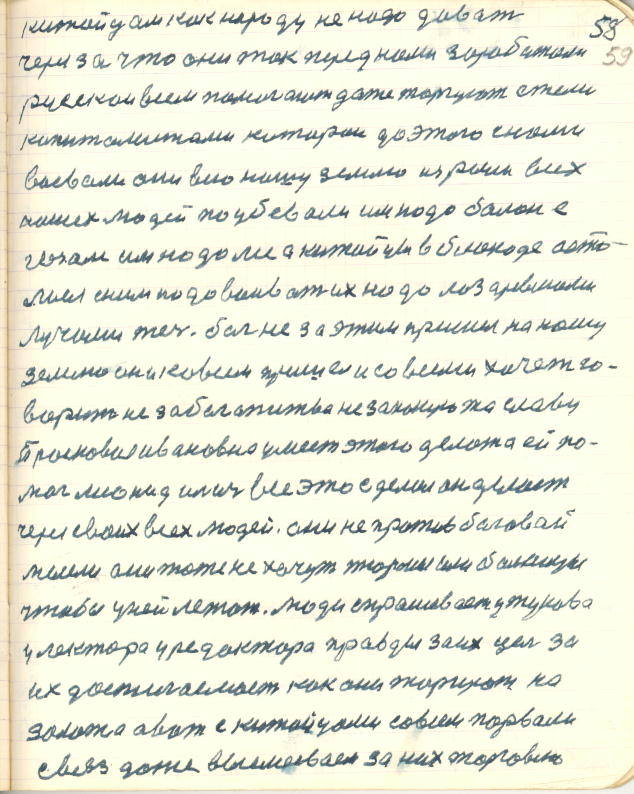 58
59
китайцам как народу не надо давать
через за что они так перед нами заработали
русскои всем помогают даже торгуют с теми
капиталистами которои до этого с нами
воевали они всю нашу землю изрыли всех
наших людей поубевали им надо
им надо а китайцы в блокоде оста-
лись сним подоваивать их надо лозаревыми
лучами теч. бог не за этим пришел на нашу
землю он ковсем пришел и со всеми хочет го-
ворить не за богатитва не за какую та славу
Просковья ивановна умеет этого делота ей по-
мог леонид илич все это сделал он делает
через своих всех людей. они не против боговай
мысли они тоже не хочут
чтобы у ней летот. люди спрашевает у жукова
у лектора у редоктора правды за их цел за
их достигаемост как они торгуют на
золота а вот с китайцами совсем порвали
связ даже высмеевают за них торговлю